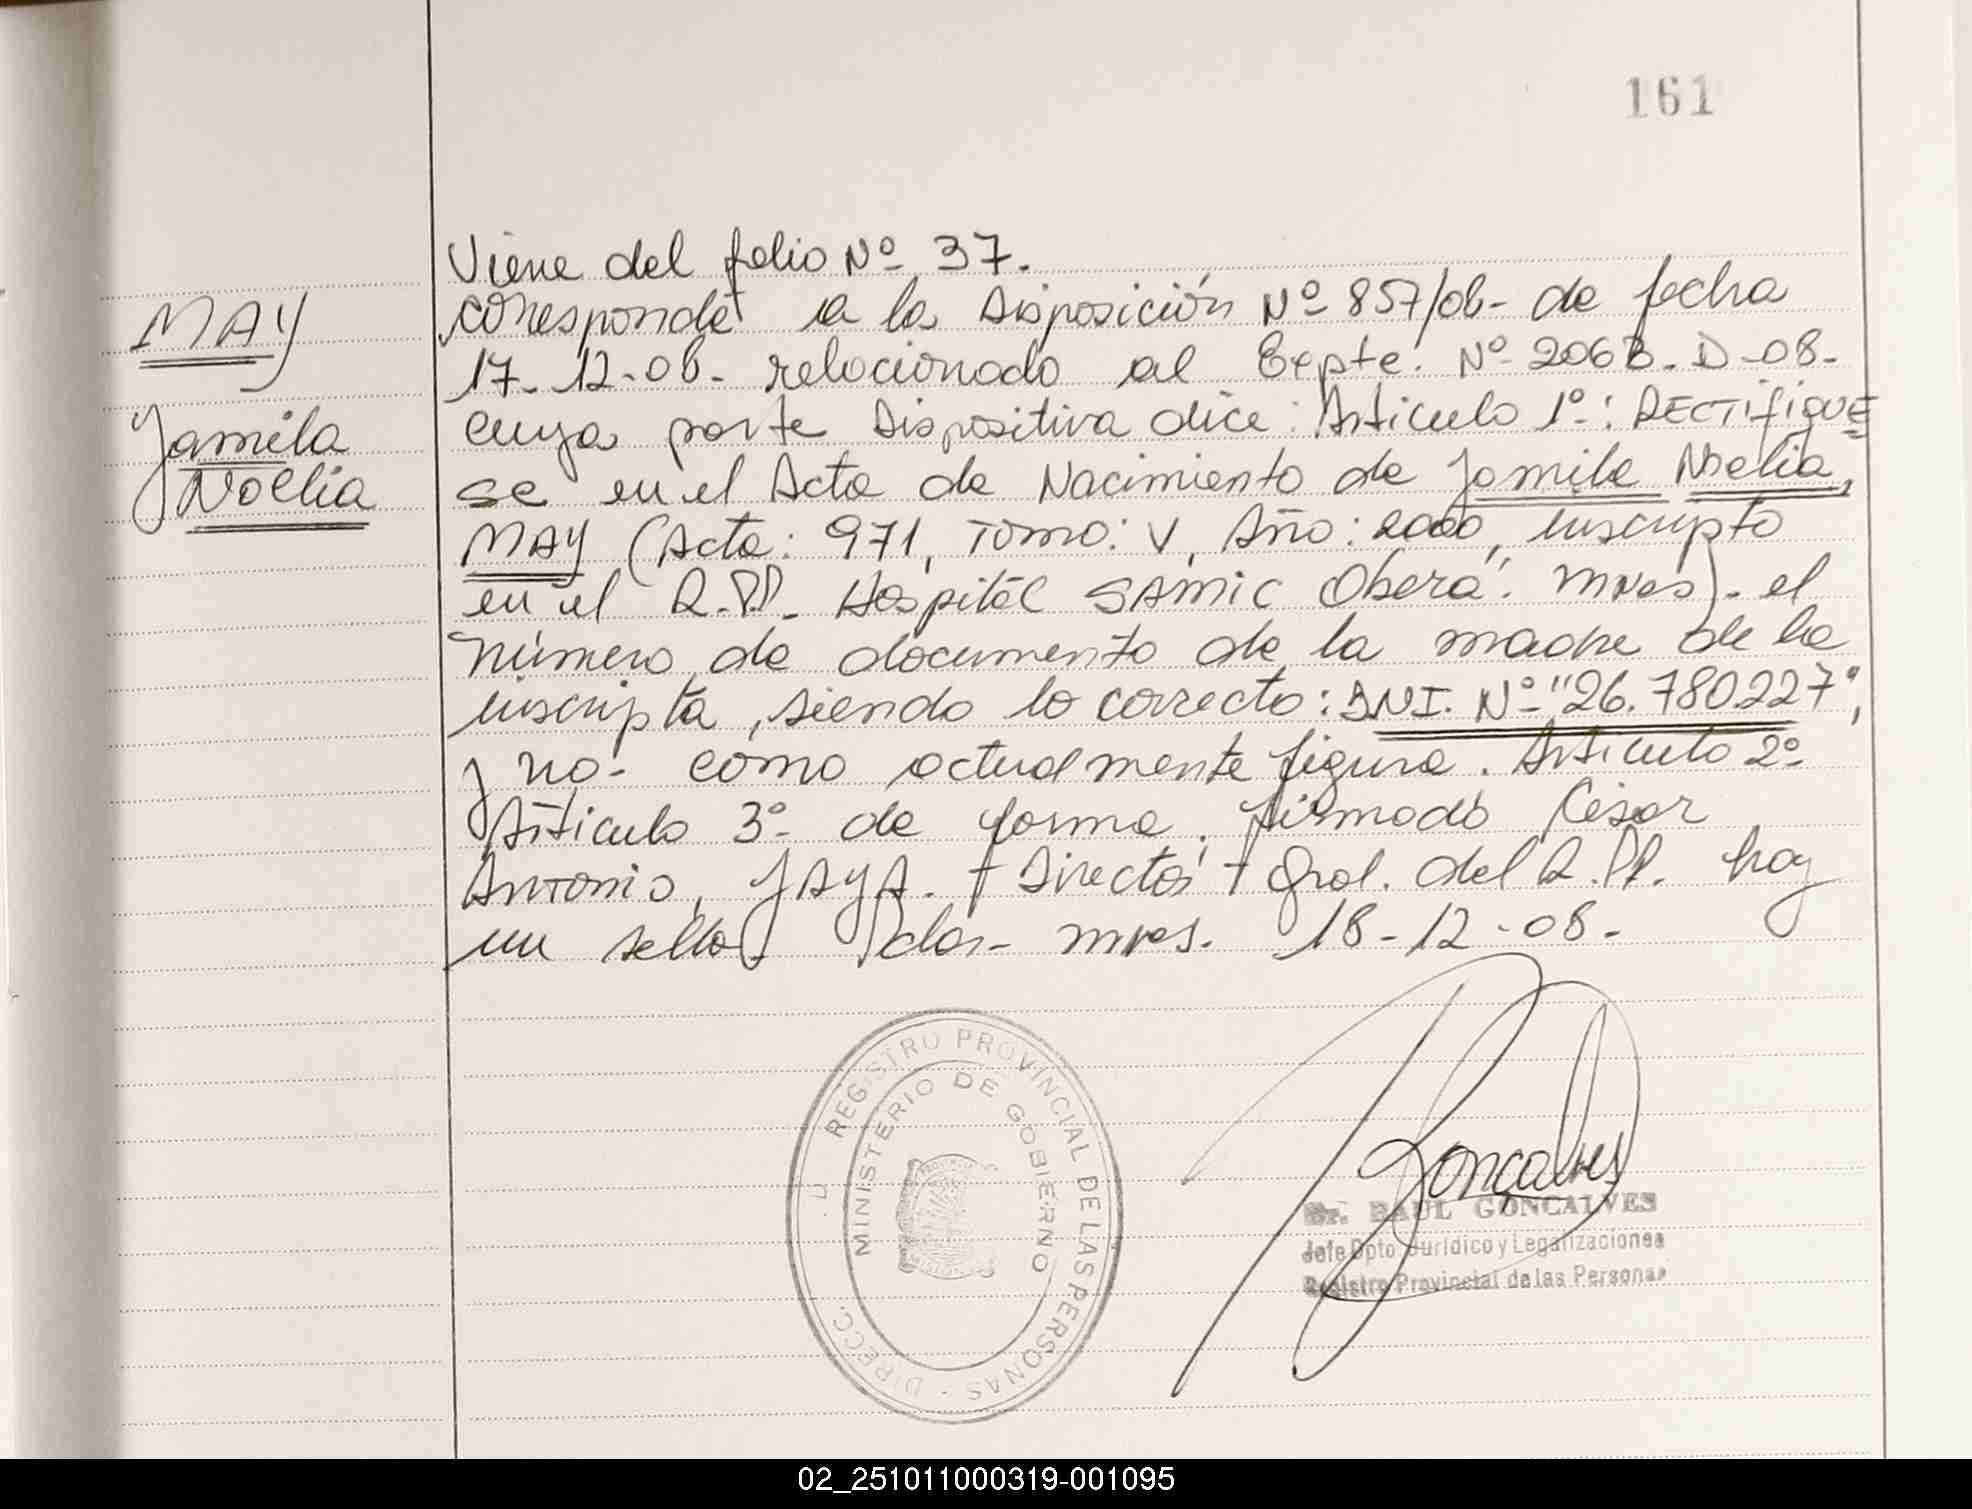 161
MAY
Jamila
Noelia
Viene del folio Nº 37.
corresponde a la Disposición Nº 857/08- de fecha
17-12-08- relacionado al Expte. Nº 2068-D-08-
cuya parte Dispositiva dice: Articulo 1º: RECTIFIQUE
se en el Acta de Nacimiento de Jamila Noelia,
MAY (Acta: 971, Tomo: V, Año: 2000, inscripto
en el R.PP. Hospital SAMIC Oberá. Mnes). el
número de documento de la madre de la
inscripta, siendo lo correcto: DNI. Nº "26.780.227",
y no- como actualmente figura. Articulo 2º
Articulo 3º de forma. firmado César
Antonio, JAYA. + Director + Gral. del R.PP. hay
un sello Pdas- Mnes. 18-12-08-
DIRECC. REGISTRO PROVINCIAL DE LAS PERSONAS -
MINISTERIO DE GOBIERNO
Gonçalves
Dr. RAUL GONCALVES
Jefe Dpto. Jurídico y Legalizaciones
Registro Provincial de las Personas
02_251011000319-001095